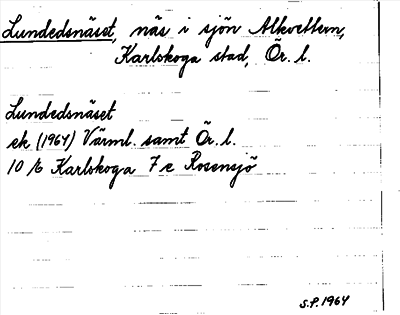 Lundedsnäset, näs i sjön Alkvettern,
Karlskoga stad, Ör. l.
Lundedsnäset
ek (1964) Värml. samt Ör. l.
10 f6 Karlskoga 7 e Rosensjö
S.P. 1964